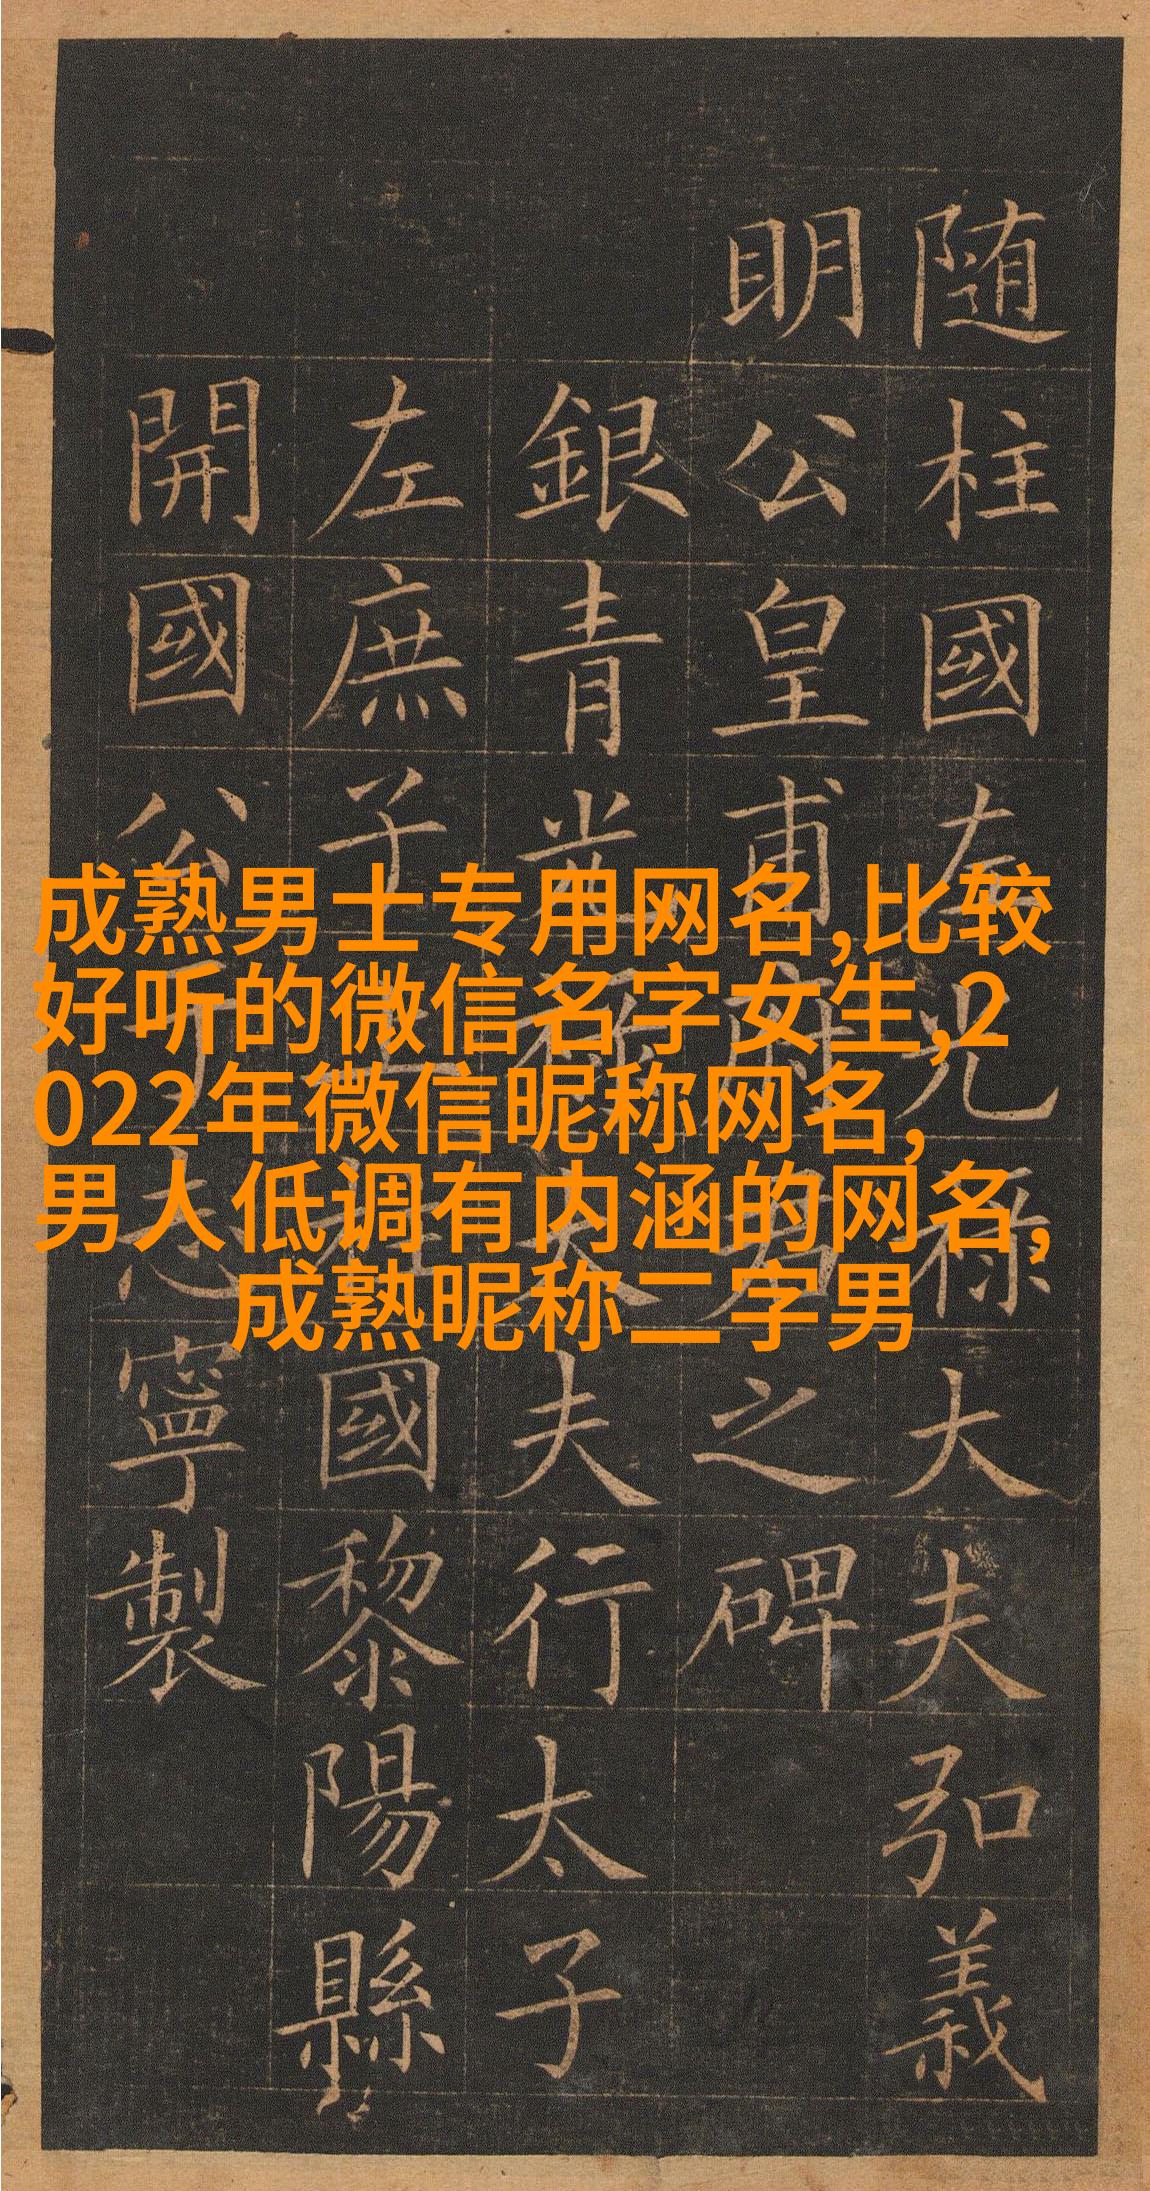 随柱國左光祿大夫弘義
明公皇甫府君之碑
銀青光祿大夫行太子
左庶子上柱國黎陽縣
開國公于志寧製
成熟男士专用网名,比较
好听的微信名字女生,2
022年微信昵称网名,
男人低调有内涵的网名,
成熟昵称二字男